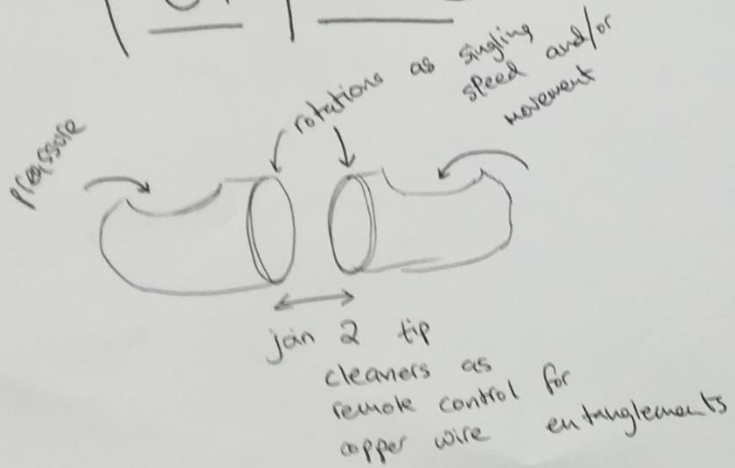 rotations as singling
speed and/or
movement
pressure
join 2 tip
cleaners as
remote control for
copper wire entanglements